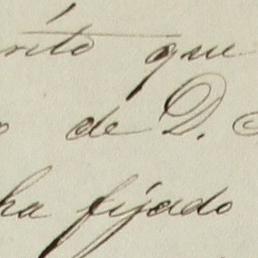 rito que
de D.
ha fijado